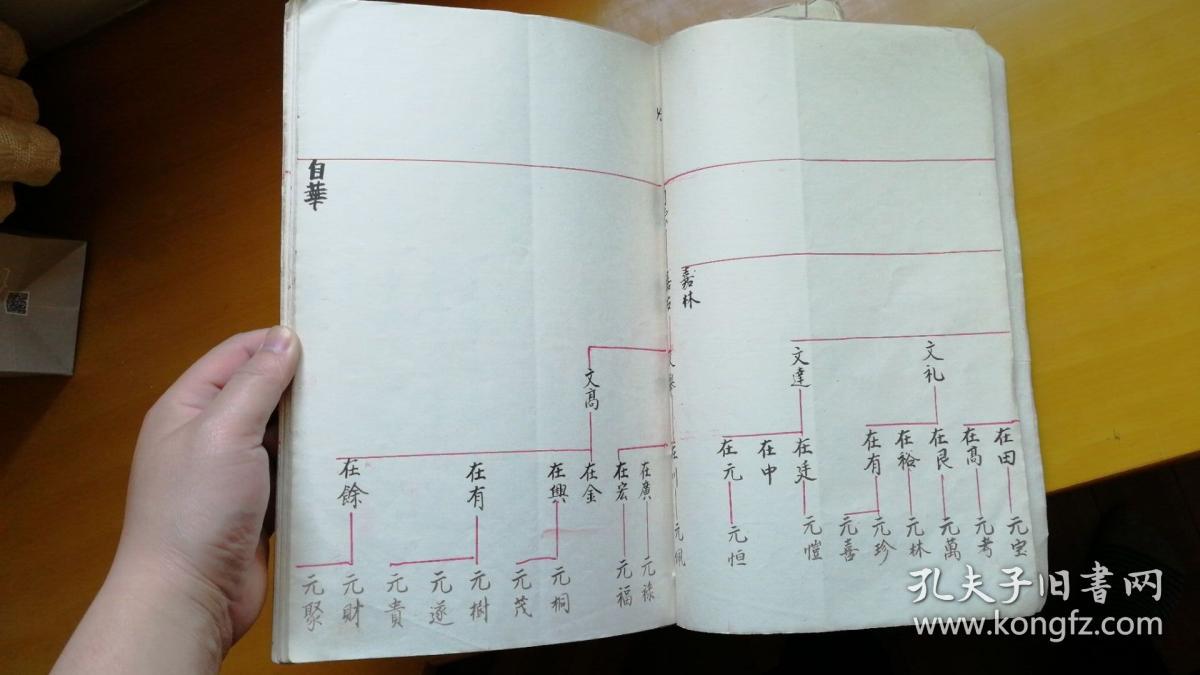 嘉林
文礼
文達
在田
在高
在艮
在裕
在有
在廷
在中
在元
元宝
元考
元萬
元林
元珍
元喜
元愷
元恒
自華
文高
在廣
在宏
在金
在興
在有
在餘
元祿
元福
元桐
元茂
元樹
元遂
元貴
元財
元聚
孔夫子旧书网
www.kongfz.com